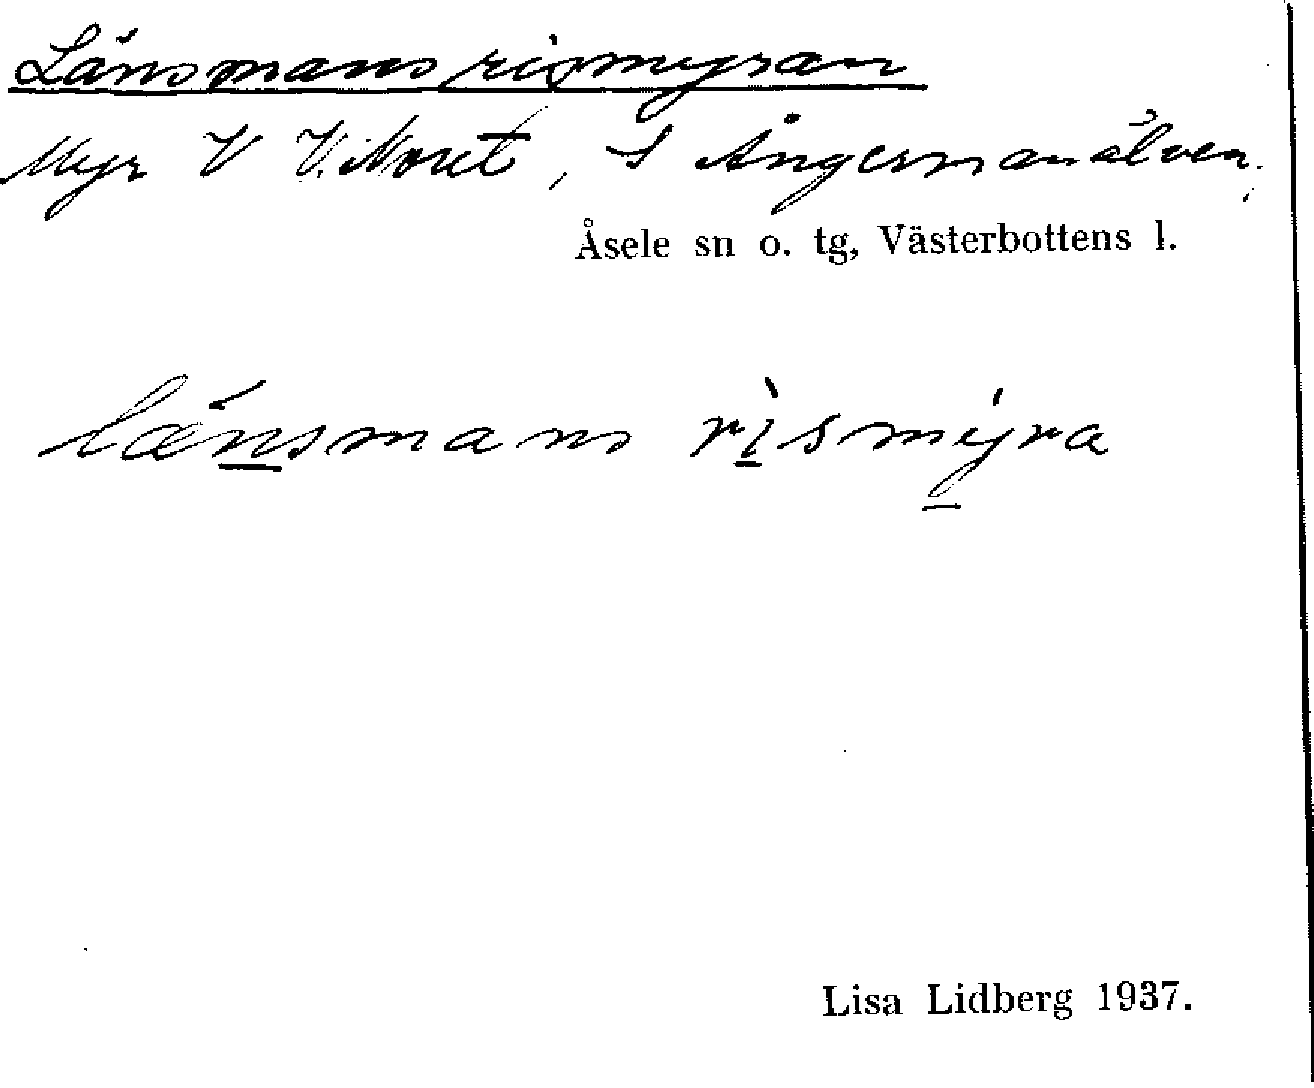 Länsmansrismyran
Myr V V. Noret, S Ångermanälven.
Åsele sn o. tg, Västerbottens l.
lænsmans rismyra
Lisa Lidberg 1937.